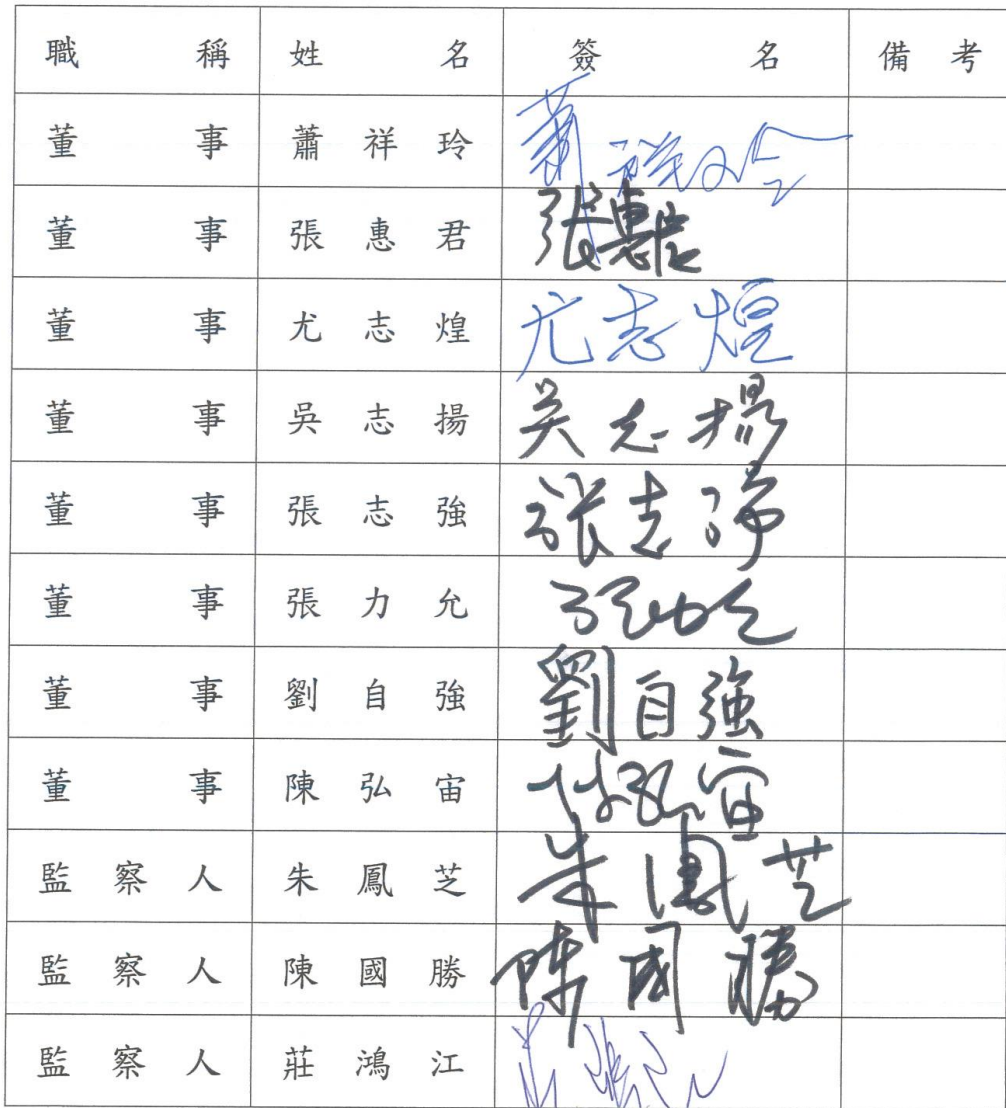 職稱 姓名 簽名 備考
董事 蕭祥玲 蕭祥玲
董事 張惠君 張惠君
董事 尤志煌 尤志煌
董事 吳志揚 吳志揚
董事 張志強 張志強
董事 張力允 張力允
董事 劉自強 劉自強
董事 陳弘宙 陳弘宙
監察人 朱鳳芝 朱鳳芝
監察人 陳國勝 陳國勝
監察人 莊鴻江